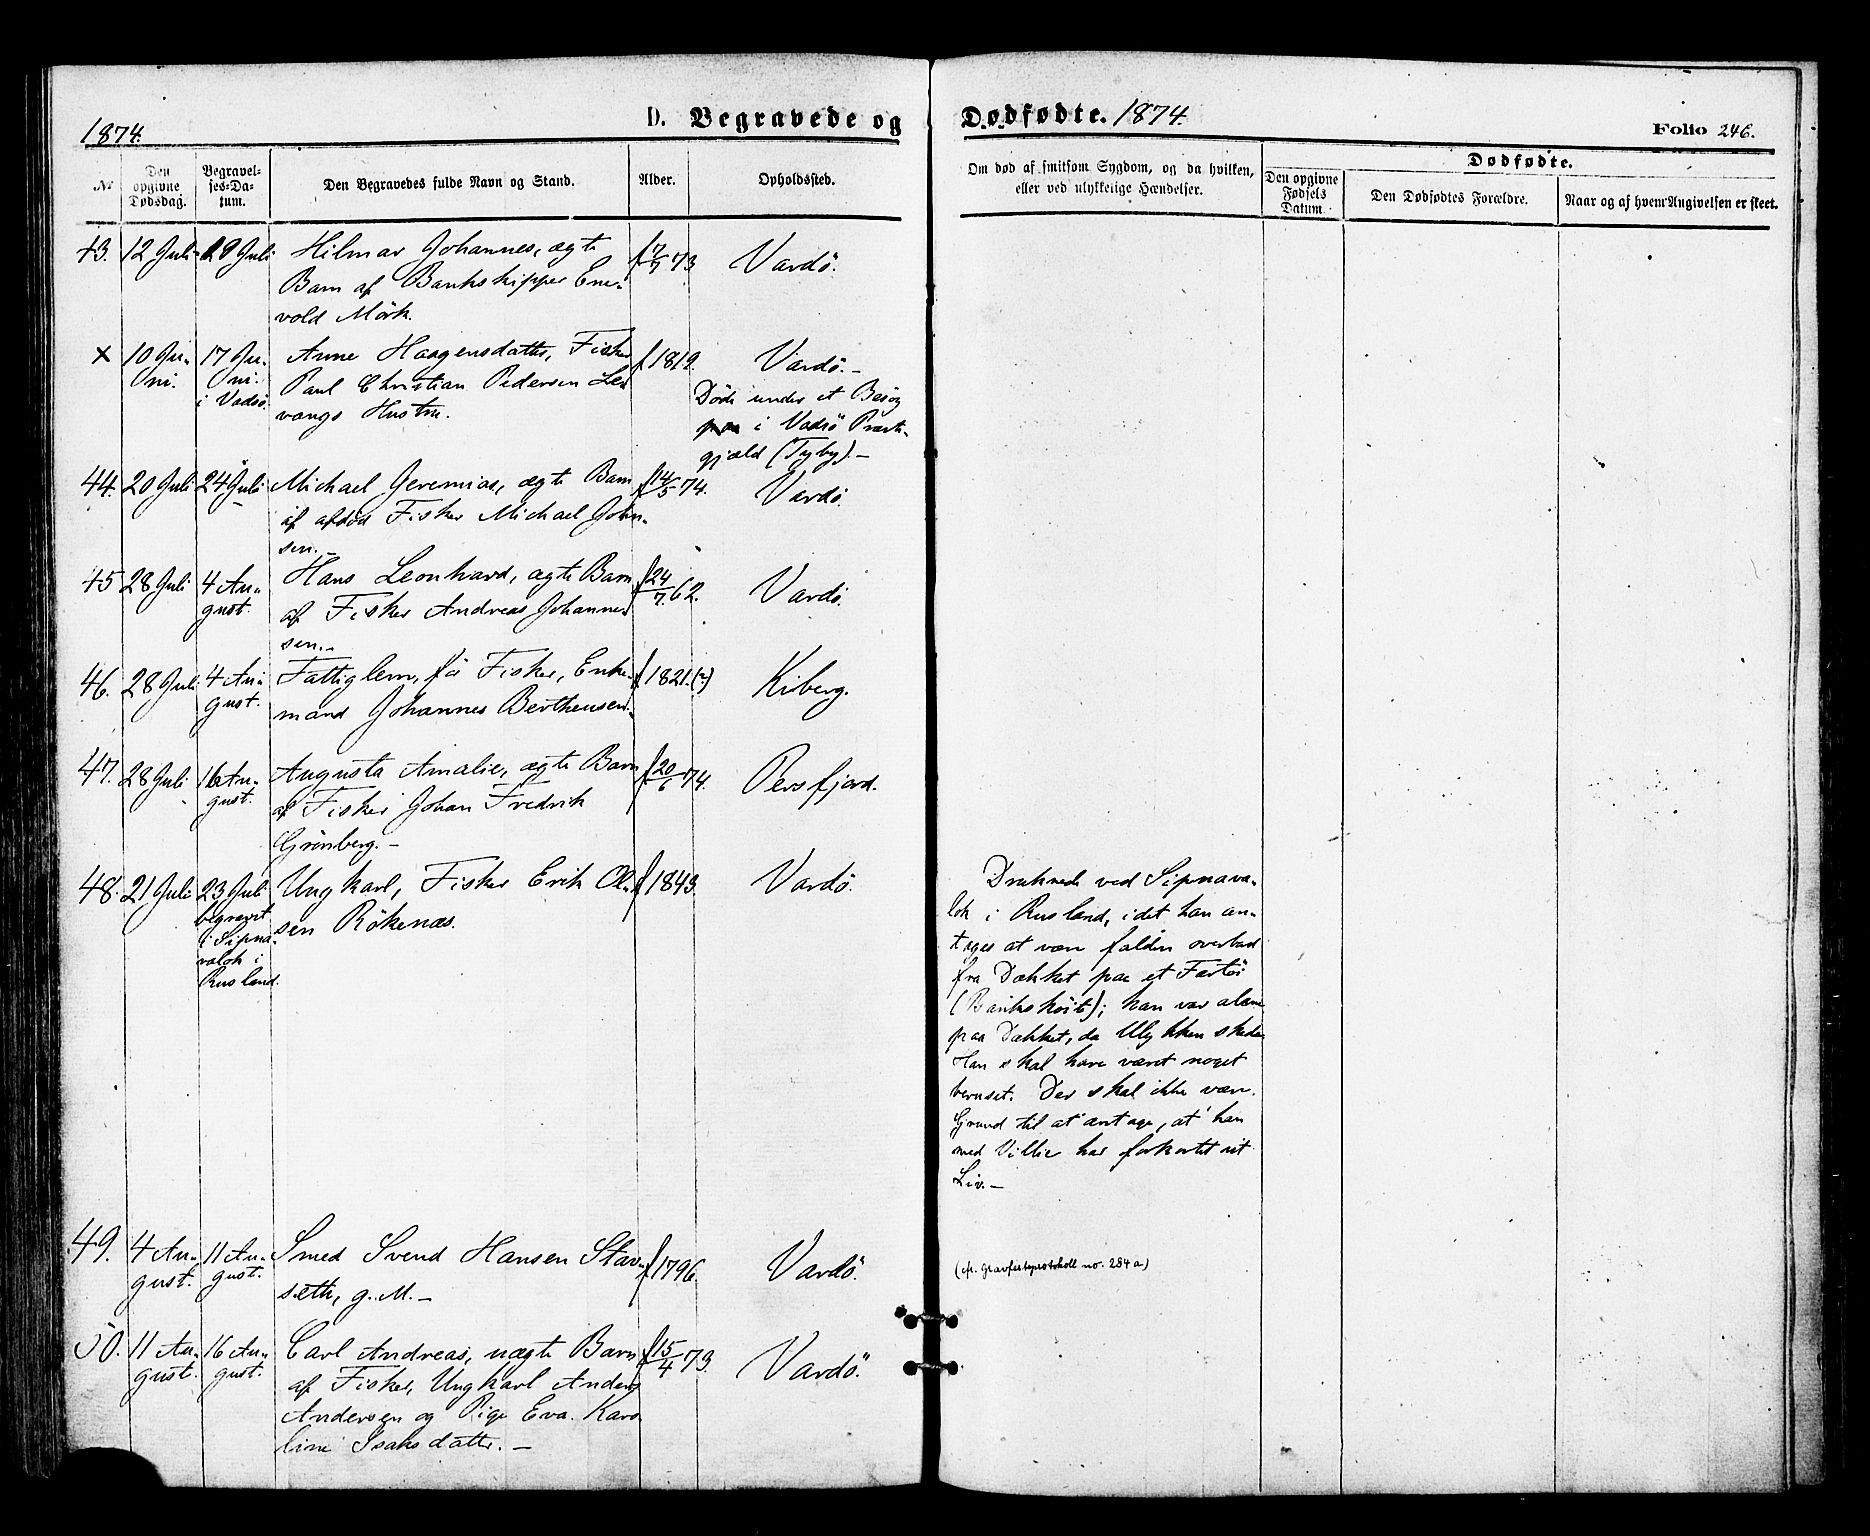 1874.
D. Begravede og
Dødfødte. 1874.
Folio 246.
No
Den opgivne Dødsdag.
Begravelses-Datum.
Den Begravedes fulde Navn og Stand.
Alder.
Opholdssted.
Om død af smitsom Sygdom, og da hvilken,
eller ved ulykkelige Hændelser.
Dødfødte.
Den opgivne Fødsels Datum
Den Dødfødtes Forældre.
Naar og af hvem Angivelsen er skeet.
43. 12 Juli 19 Juli Hilmar Johannes, ægte f 7/7 73 Vardö.
Barn af Bankskipper Ene-
vold Mörk.
× 10 Ju- 17 Ju- Anne Haagensdatter, Fisker f 1819. Vardö.-
ni. ni. Paul Christian Pedersen Le- Döde under et Besög
i Vadsö. vangs Hustru. i Vadsö Præste-
gjæld (Tyby).-
44. 20 Juli 24 Juli Michael Jeremias, ægte Barn f 14/5 74. Vardö.
af afdöd Fisker Michael John-
sen.-
45 28 Juli 4 Au- Hans Leonhard, ægte Barn f 24/7 62. Vardö.
gust. af Fisker Andreas Johannes
sen.-
46. 28 Juli 4 Au- Fattiglem, för Fisker, Enke- f 1821.(?) Kiberg.
gust. mand Johannes Berthensen.
47. 28 Juli 16 Au- Augusta Amalie, ægte Barn f 20/6 74. Persfjord.
gust. af Fisker Johan Fredrik
Grönberg.-
48. 21 Juli 23 Juli Ungkarl, Fisker Erik Ol- f 1843. Vardö.
begravet sen Rökenæs.
i Sipna-
valok i
Rusland.
Druknede ved Sipnava-
lok i Rusland, idet han an-
tages at være falden overbord
fra Dækket paa et Fartöi
(Banksköit); han var alene
paa Dækket, da Ulykken skede.
Han skal have været noget
beruset. Der skal ikke være
Grund til at antage, at han
med Villie har forkortet sit
Liv.-
49. 4 Au- 11 Au- Smed Svend Hansen Stav- f 1796. Vardö. (cfr. Gravfesteprotokoll no. 284 a.)
gust. gust. sæth, g. M.-
50. 11 Au- 16 Au- Carl Andreas, uægte Barn f 15/4 73. Vardö.
gust. gust. af Fisker, Ungkarl Anders
Andersen og Pige Eva Karo-
line Isaksdatter.-